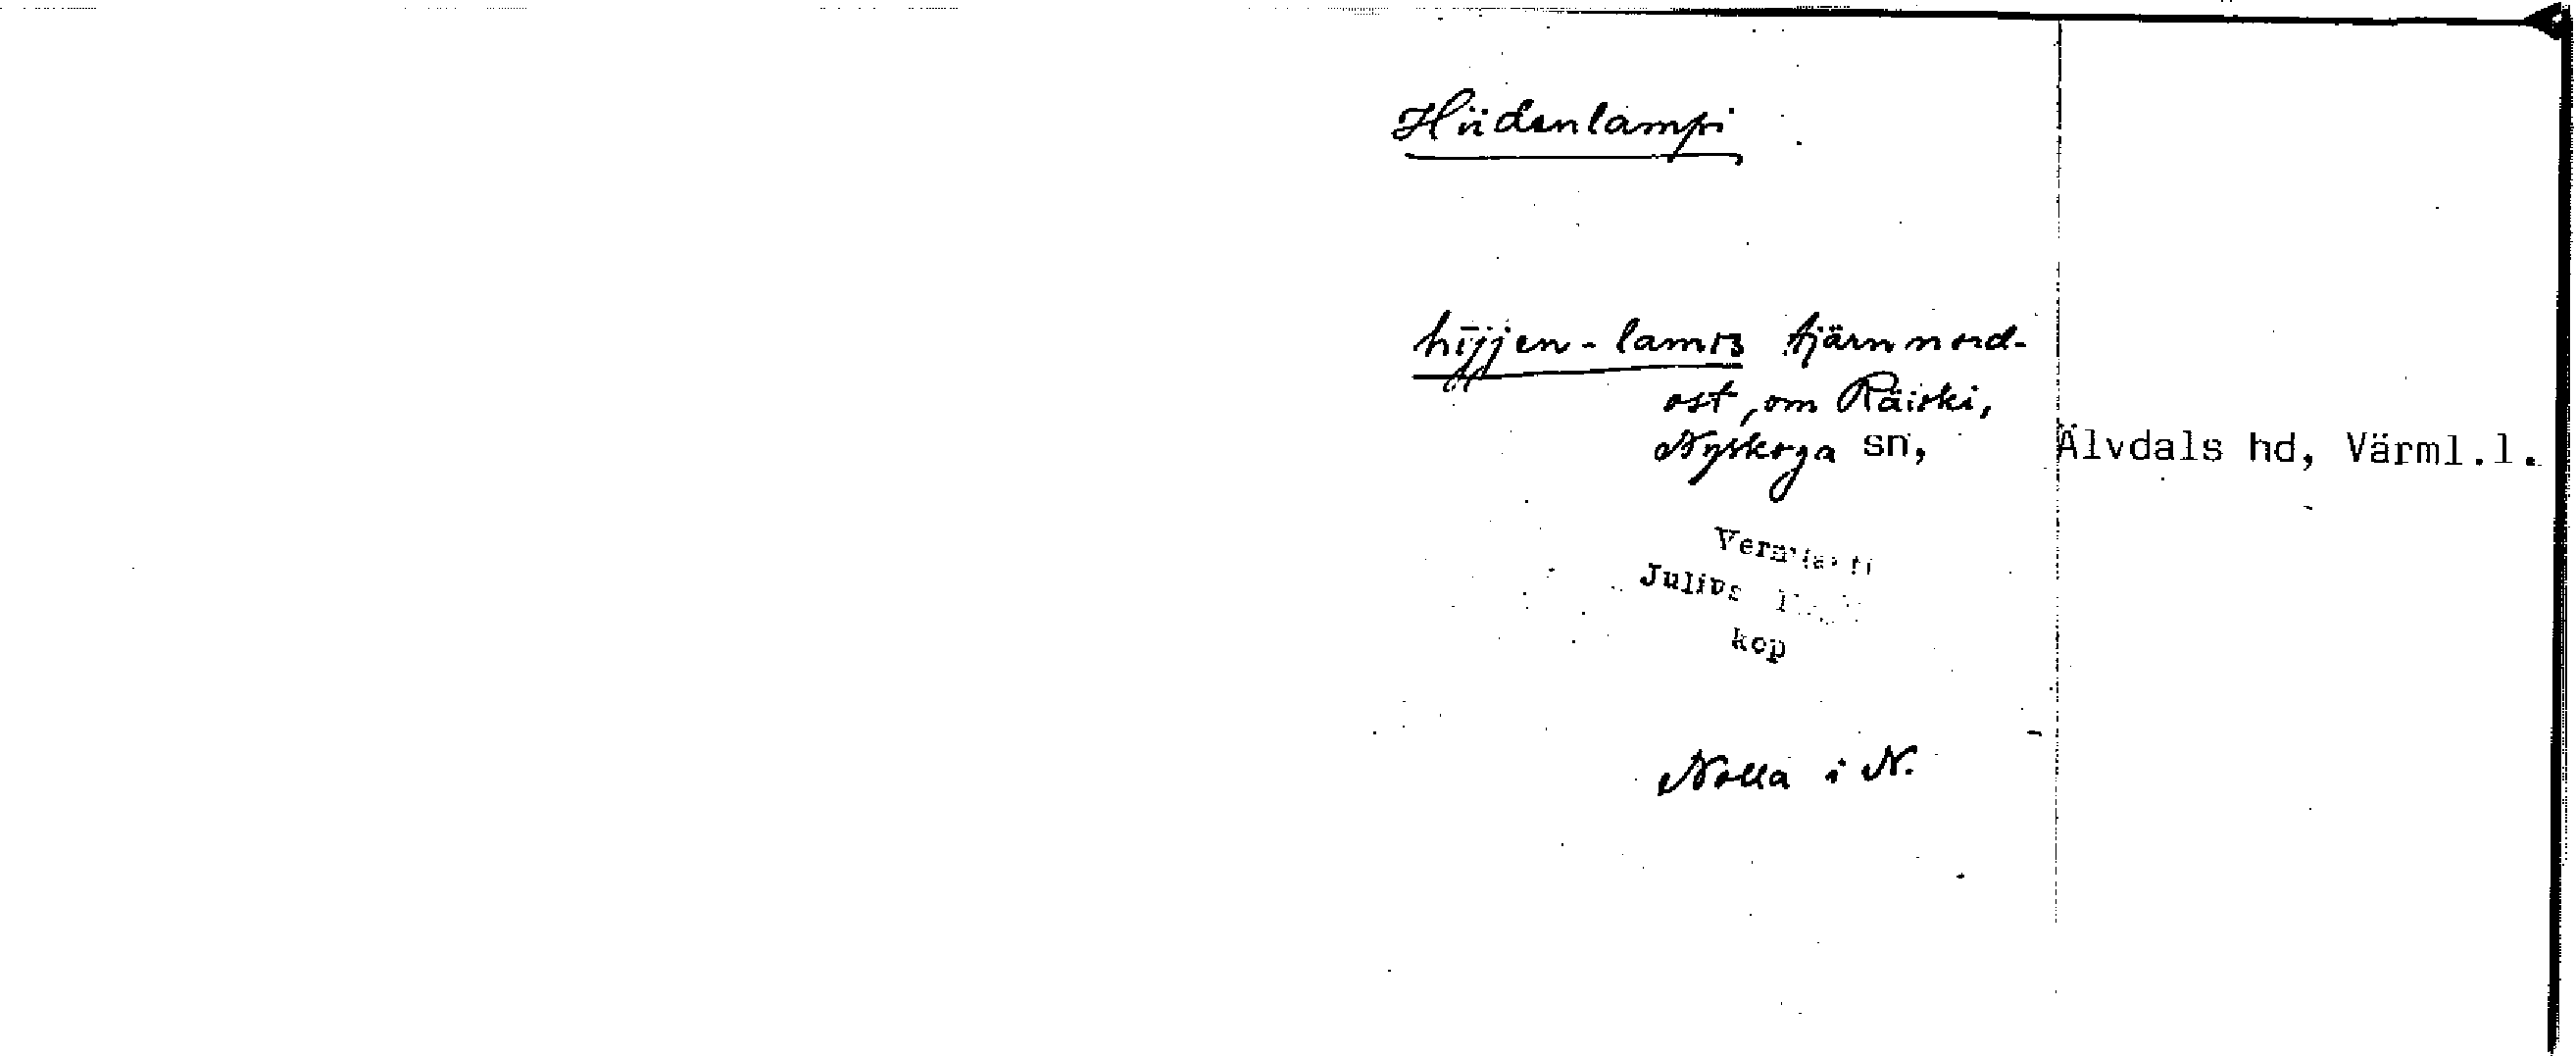 Hiidenlampi
hījjen-lamb tjärn nord-
ost, om Räiski,
Nyskoga sn, Älvdals hd, Värml.l.
Julius
kop
Nolla i N.